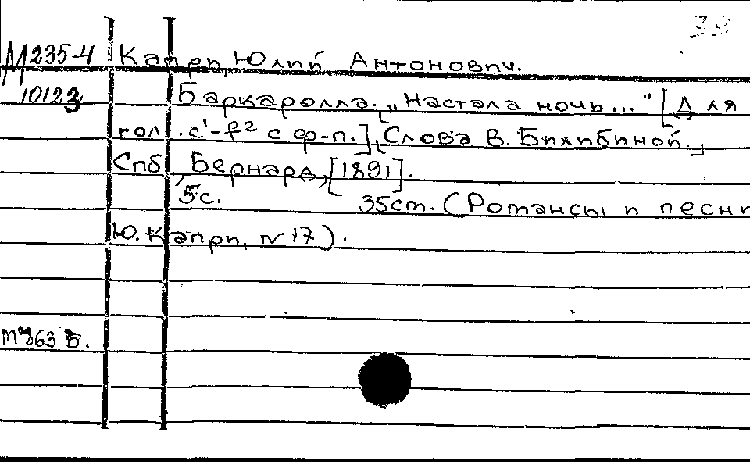 М235-4 Капри, Юлий Антонович.
10123 Баркаролла. „Настала ночь..." [Для
гол. c¹-f² с ф-п.] [Слова В. Билибиной.]
Спб, Бернард, [1891].
5с. 35см. (Романсы и песни
Ю. Капри, N17).